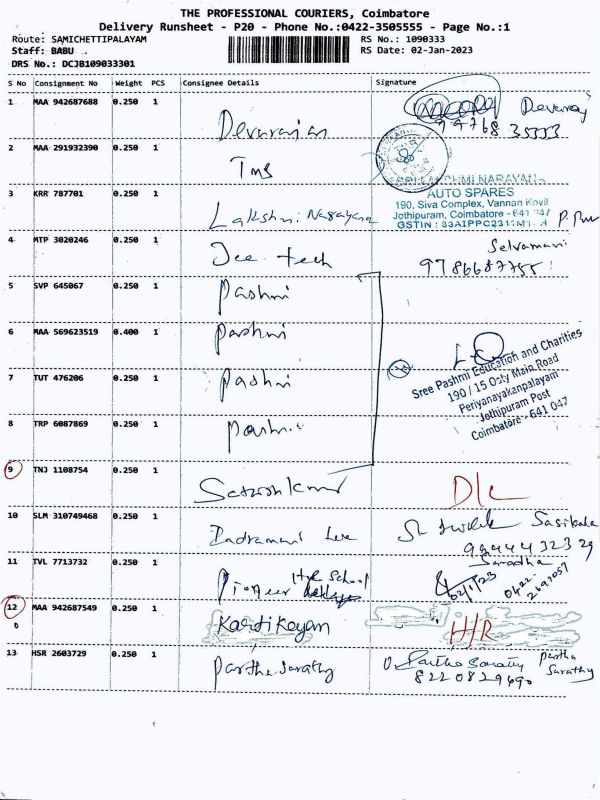 THE PROFESSIONAL COURIERS, Coimbatore
Delivery Runsheet - P20 - Phone No.:0422-3505555 - Page No.:1
Route: SAMICHETTIPALAYAM RS No.: 1090333
Staff: BABU RS Date: 02-Jan-2023
DRS No.: DCJB109033301
S No Consignment No Weight PCS Consignee Details Signature
1 MAA 942687688 0.250 1 Devarajan Devaraj
99768 35555
2 MAA 291932390 0.250 1 Tms
3 KRR 787701 0.250 1 Lakshmi Narayana
AUTO SPARES
190, Siva Complex, Vannan Kovil
Jothipuram, Coimbatore - 641 047
4 MTP 3020246 0.250 1 Jee tech Selvamani
9786687755
5 SVP 645067 0.250 1 Pashmi
6 MAA 569623519 0.400 1 Pashmi
7 TUT 476206 0.250 1 Pashmi
8 TRP 6087869 0.250 1 Pashmi
Sree Pashmi Education and Charities
190 / 15 Ooty Main Road
Periyanayakanpalayam
Jothipuram Post
Coimbatore - 641 047
9 TNJ 1108754 0.250 1 Sathishkumar D/L
10 SLM 310749468 0.250 1 Sasikala
9944432329
11 TVL 7713732 0.250 1 Pioneer School Saradha
02/1/23 0422-
2697057
12 MAA 942687549 0.250 1 Kartikeyan H/R
13 HSR 2603729 0.250 1 Partha Sarathy Partha Sarathy Partha Sarathy
8220829690